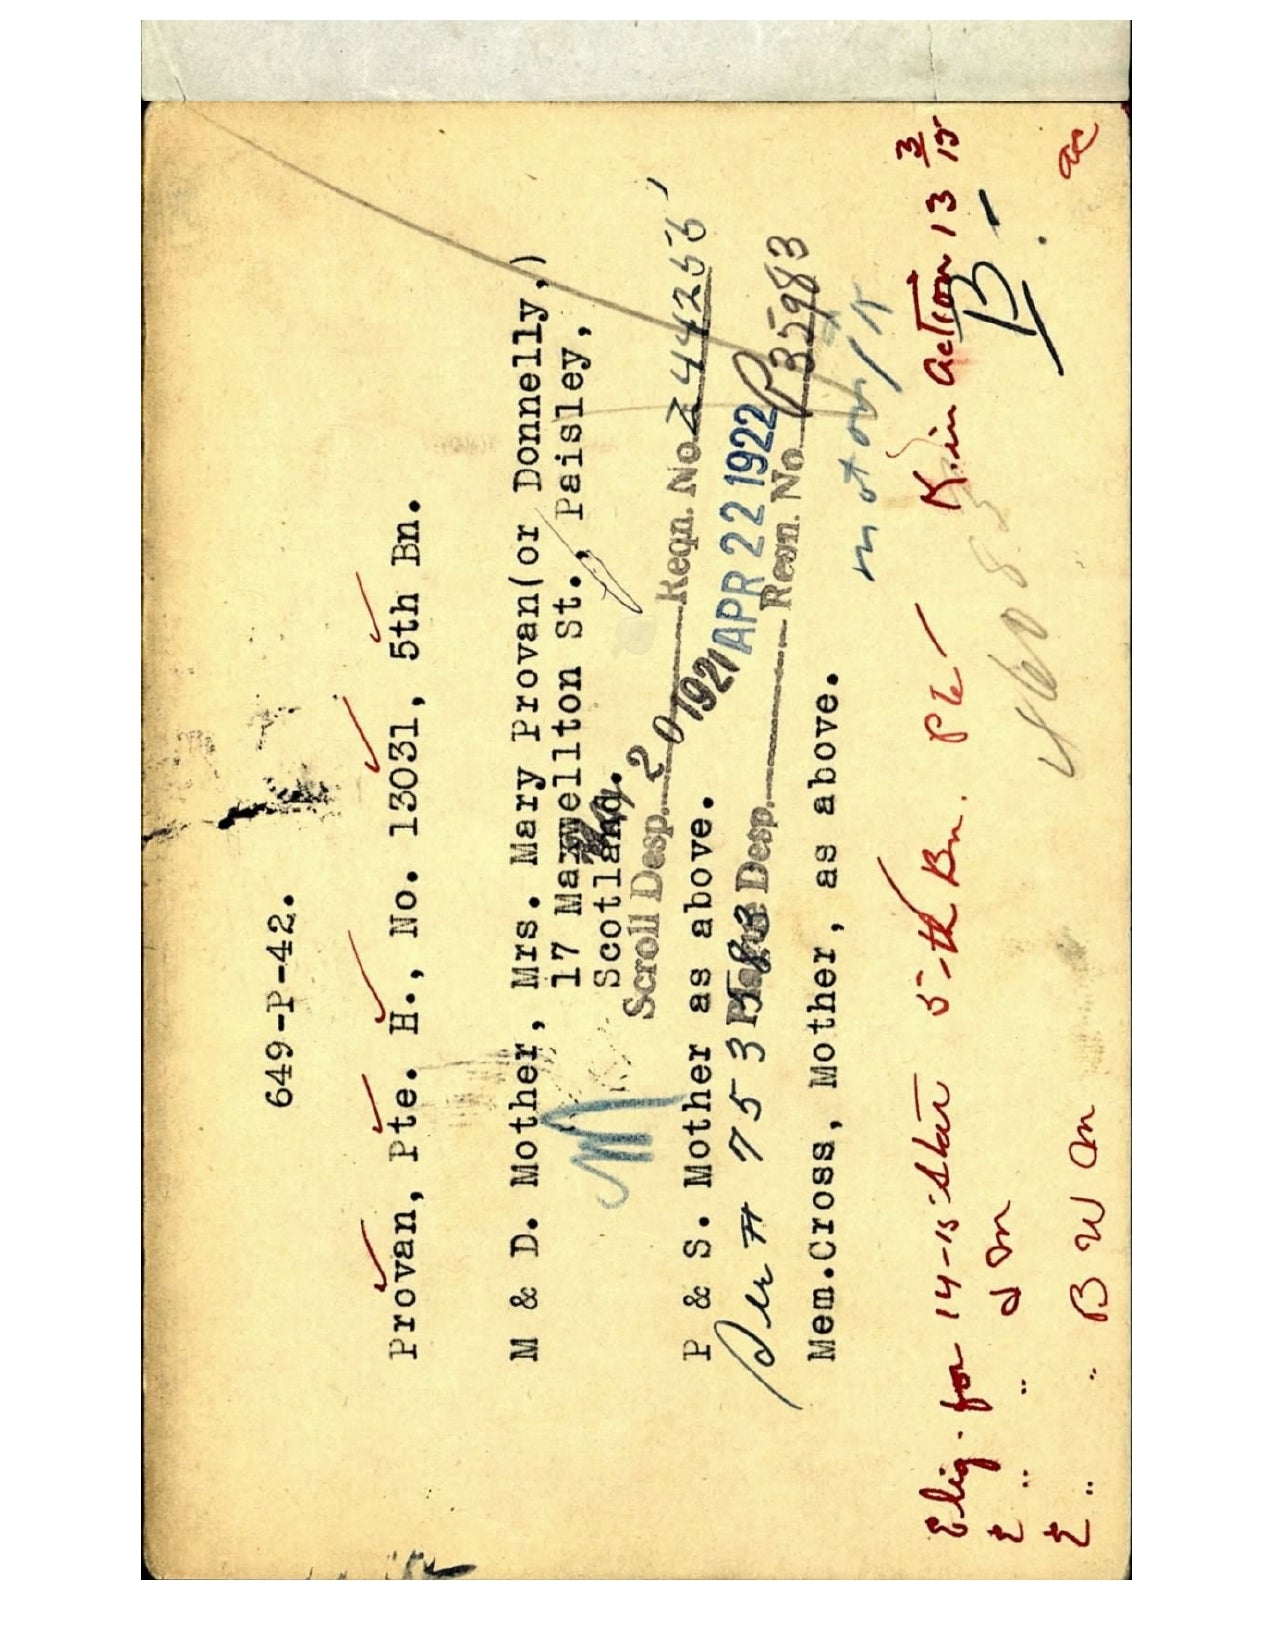 649-P-42.
Provan, Pte. H., No. 13031, 5th Bn.
M & D. Mother, Mrs. Mary Provan(or Donnelly,)
17 Maxwellton St., Paisley,
Scotland.
Scroll Desp. 20 1921 Reqn. No. Z 44255
P & S. Mother as above.
APR 22 1922
Desp. Reqn. No. P35983
# 753
Mem.Cross, Mother, as above.
not on
Elig. for 14-15 Star 5th Bn. Pte K. in Action 13 3/15
E " " VM
B.
E " " B W M
46083